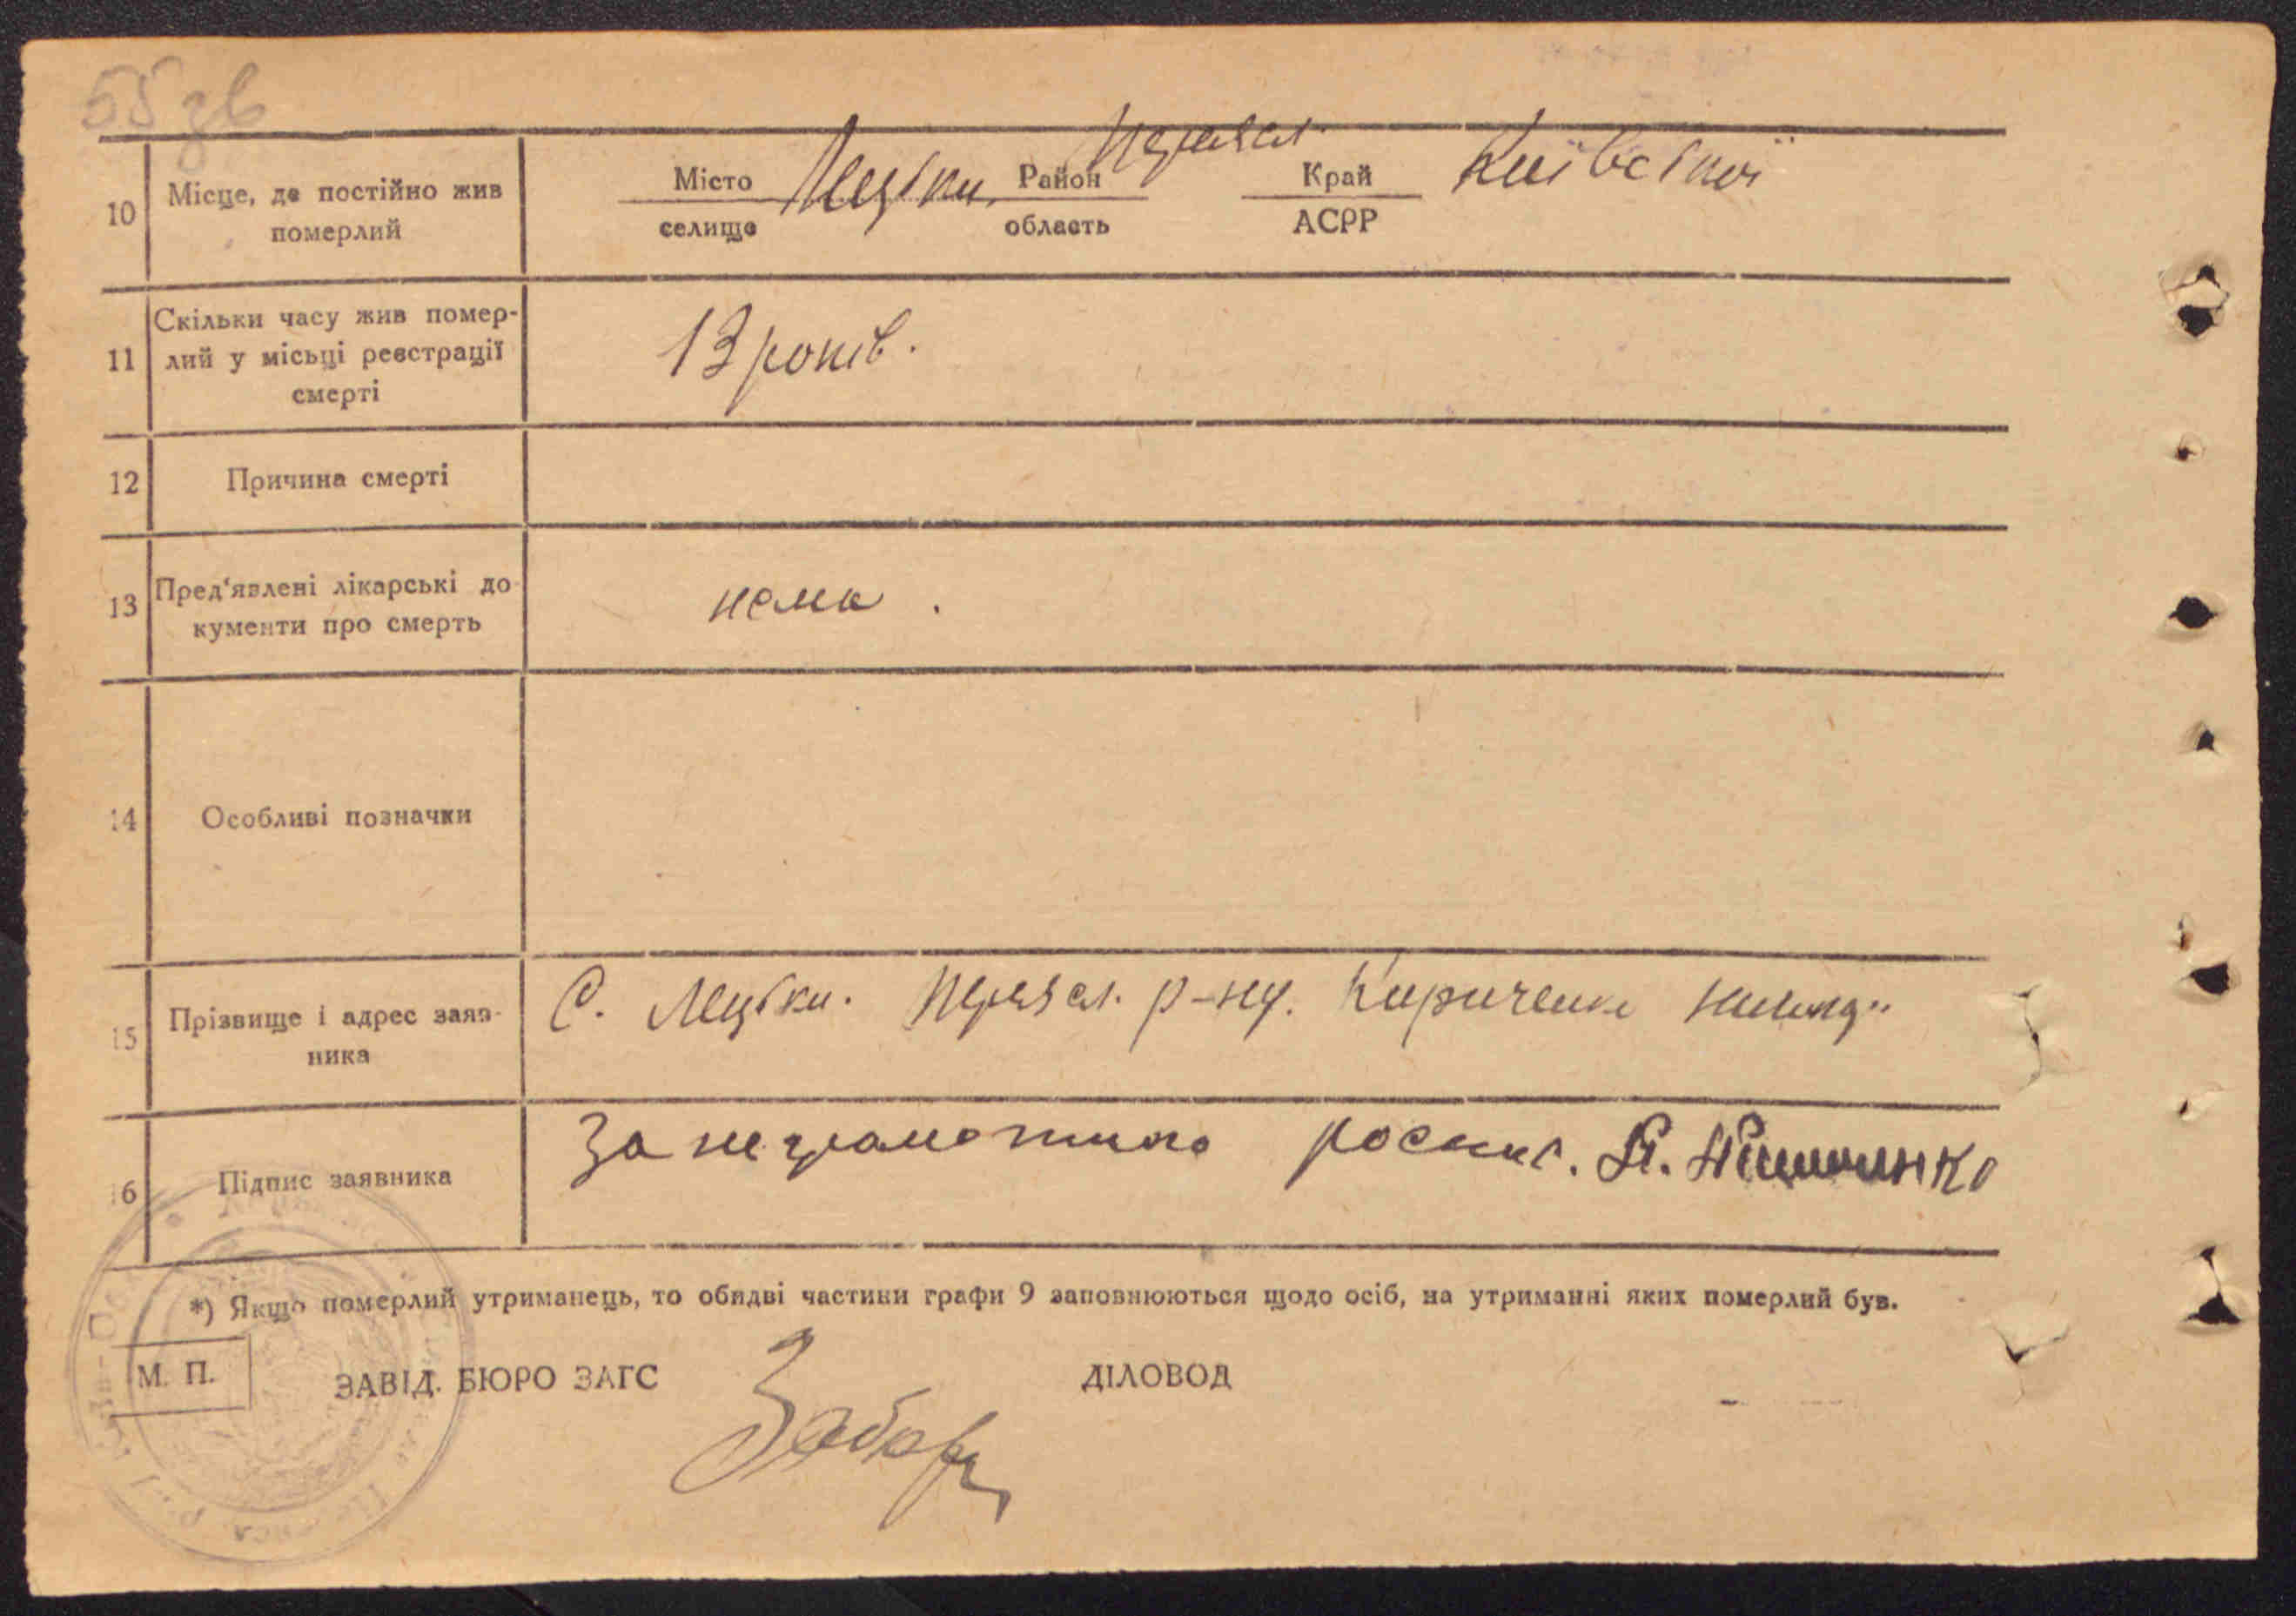 55 зв
10 Місце, де постійно жив померлий
Місто Лецьки, Район Переясл. Край Київської
селище область АСРР
11 Скільки часу жив помер-
лий у місьці реєстрації
смерті
13 років.
12 Причина смерті
13 Пред'явлені лікарські до
кументи про смерть
нема.
14 Особливі позначки
15 Прізвище і адрес заяв-
ника
С. Лецьки. Переясл. р-ну. Кириченко
16 Підпис заявника
За неграмотного роспис.
*) Якщо померлий утриманець, то обидві частини графи 9 заповнюються щодо осіб, на утриманні яких померлий був.
М. П. ЗАВІД. БЮРО ЗАГС ДІЛОВОД